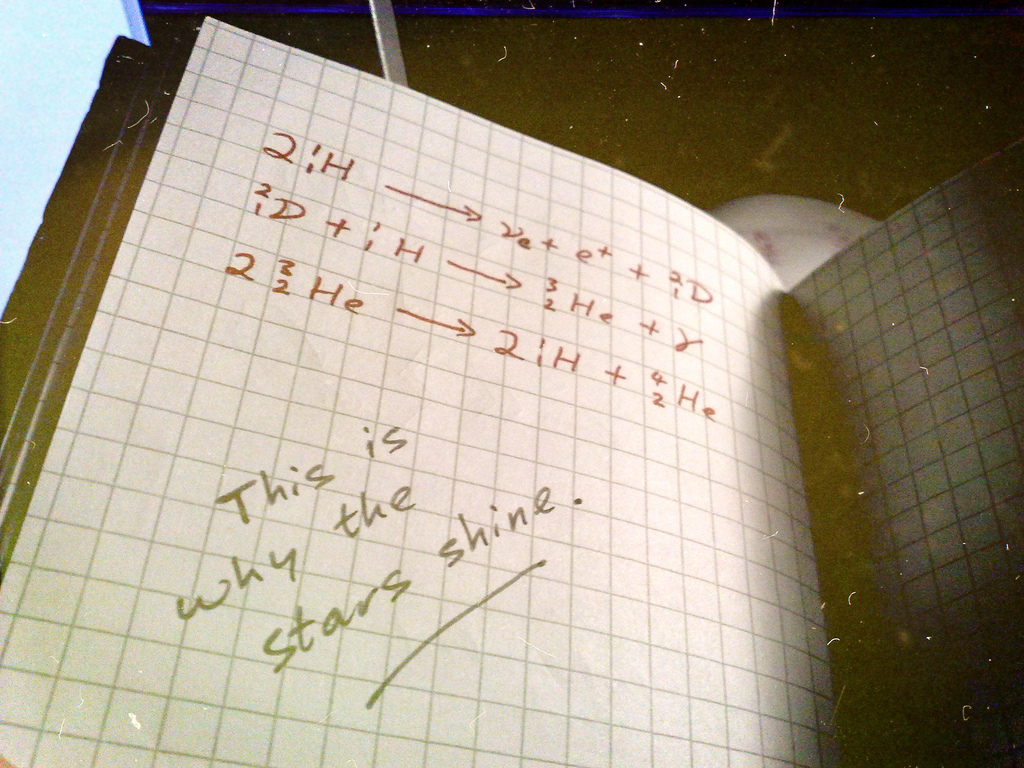 2 ¹₁H → νe + e⁺ + ²₁D
²₁D + ¹₁H → ³₂He + γ
2 ³₂He → 2 ¹₁H + ⁴₂He
This is
why the
stars shine.